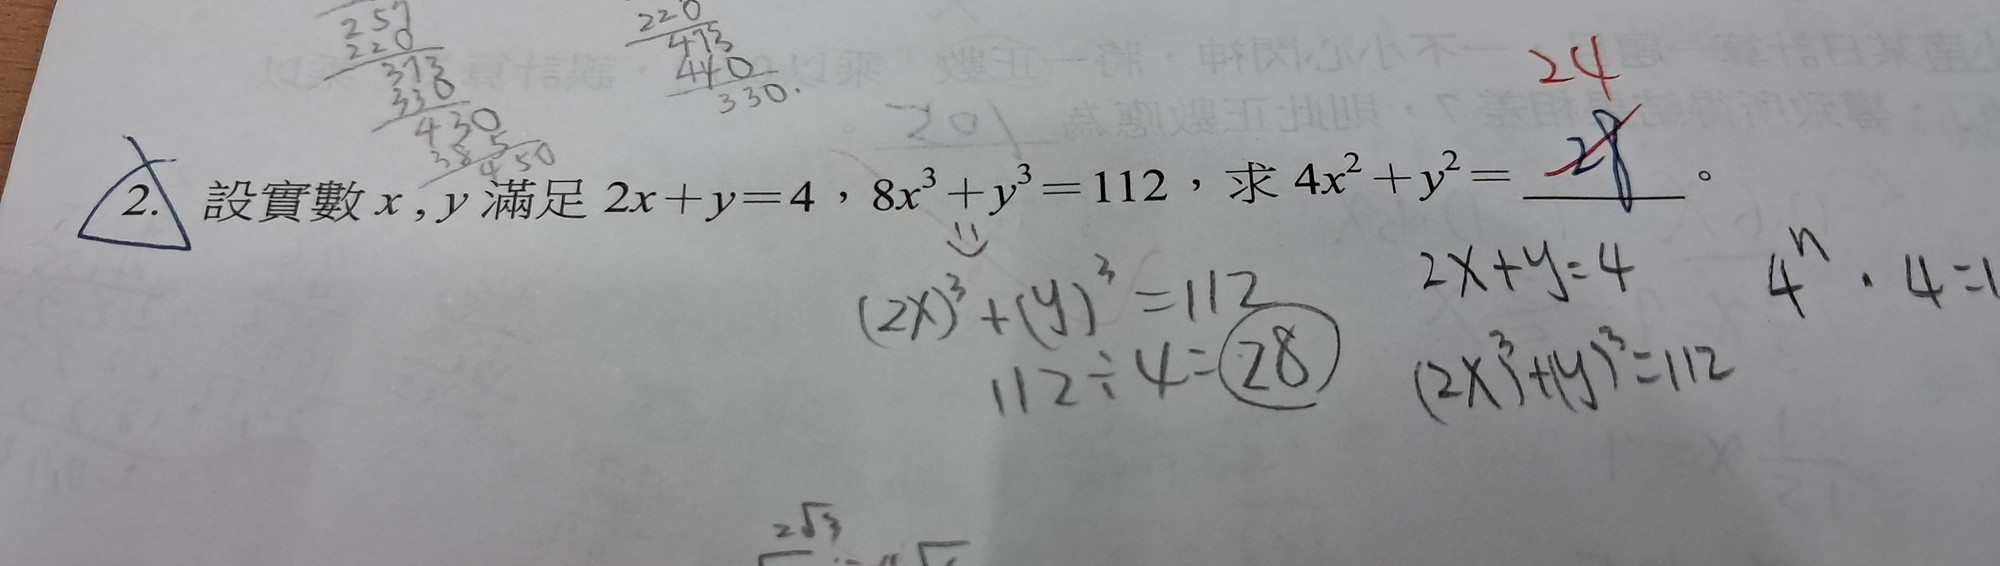 257
220
373
330
430
385
450
220
473
440
330.
24
2. 設實數 x , y 滿足 2x+y=4，8x³+y³=112，求 4x²+y²= 28 。
(2x)³+(y)³=112
112÷4=28
2x+y=4
(2x)³+(y)³=112
4ⁿ · 4=1
2√3